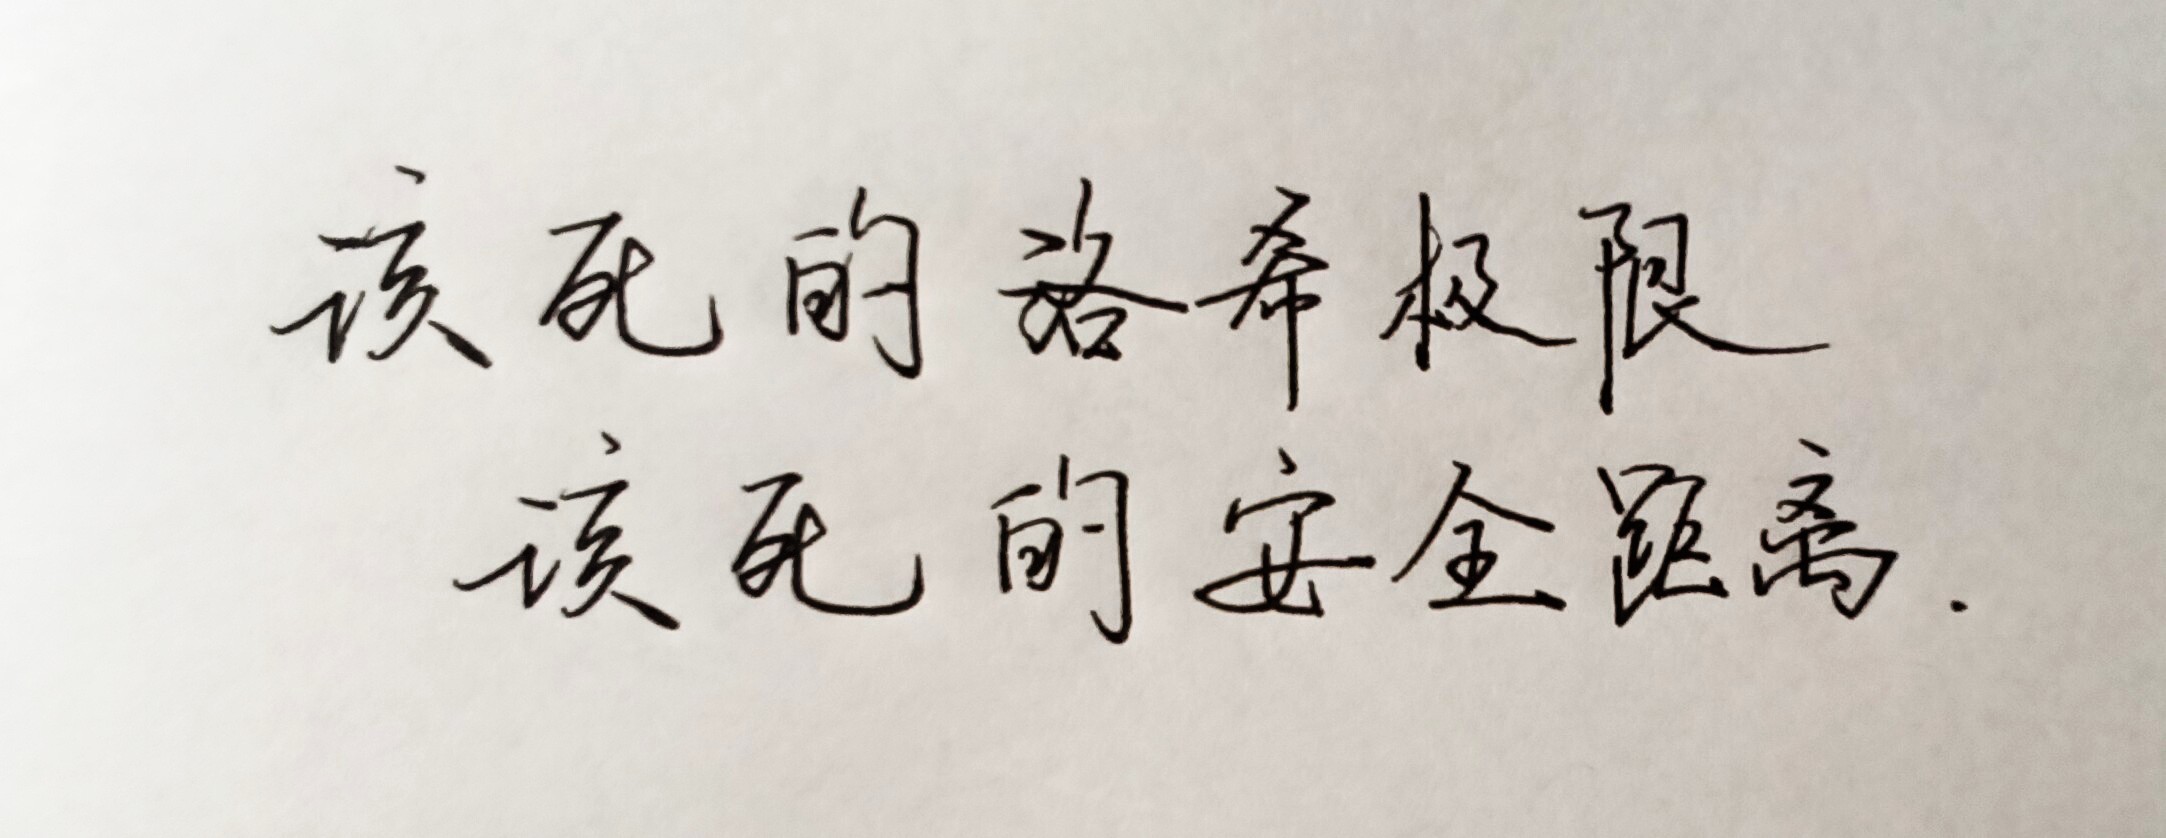 该死的洛希极限
该死的安全距离.